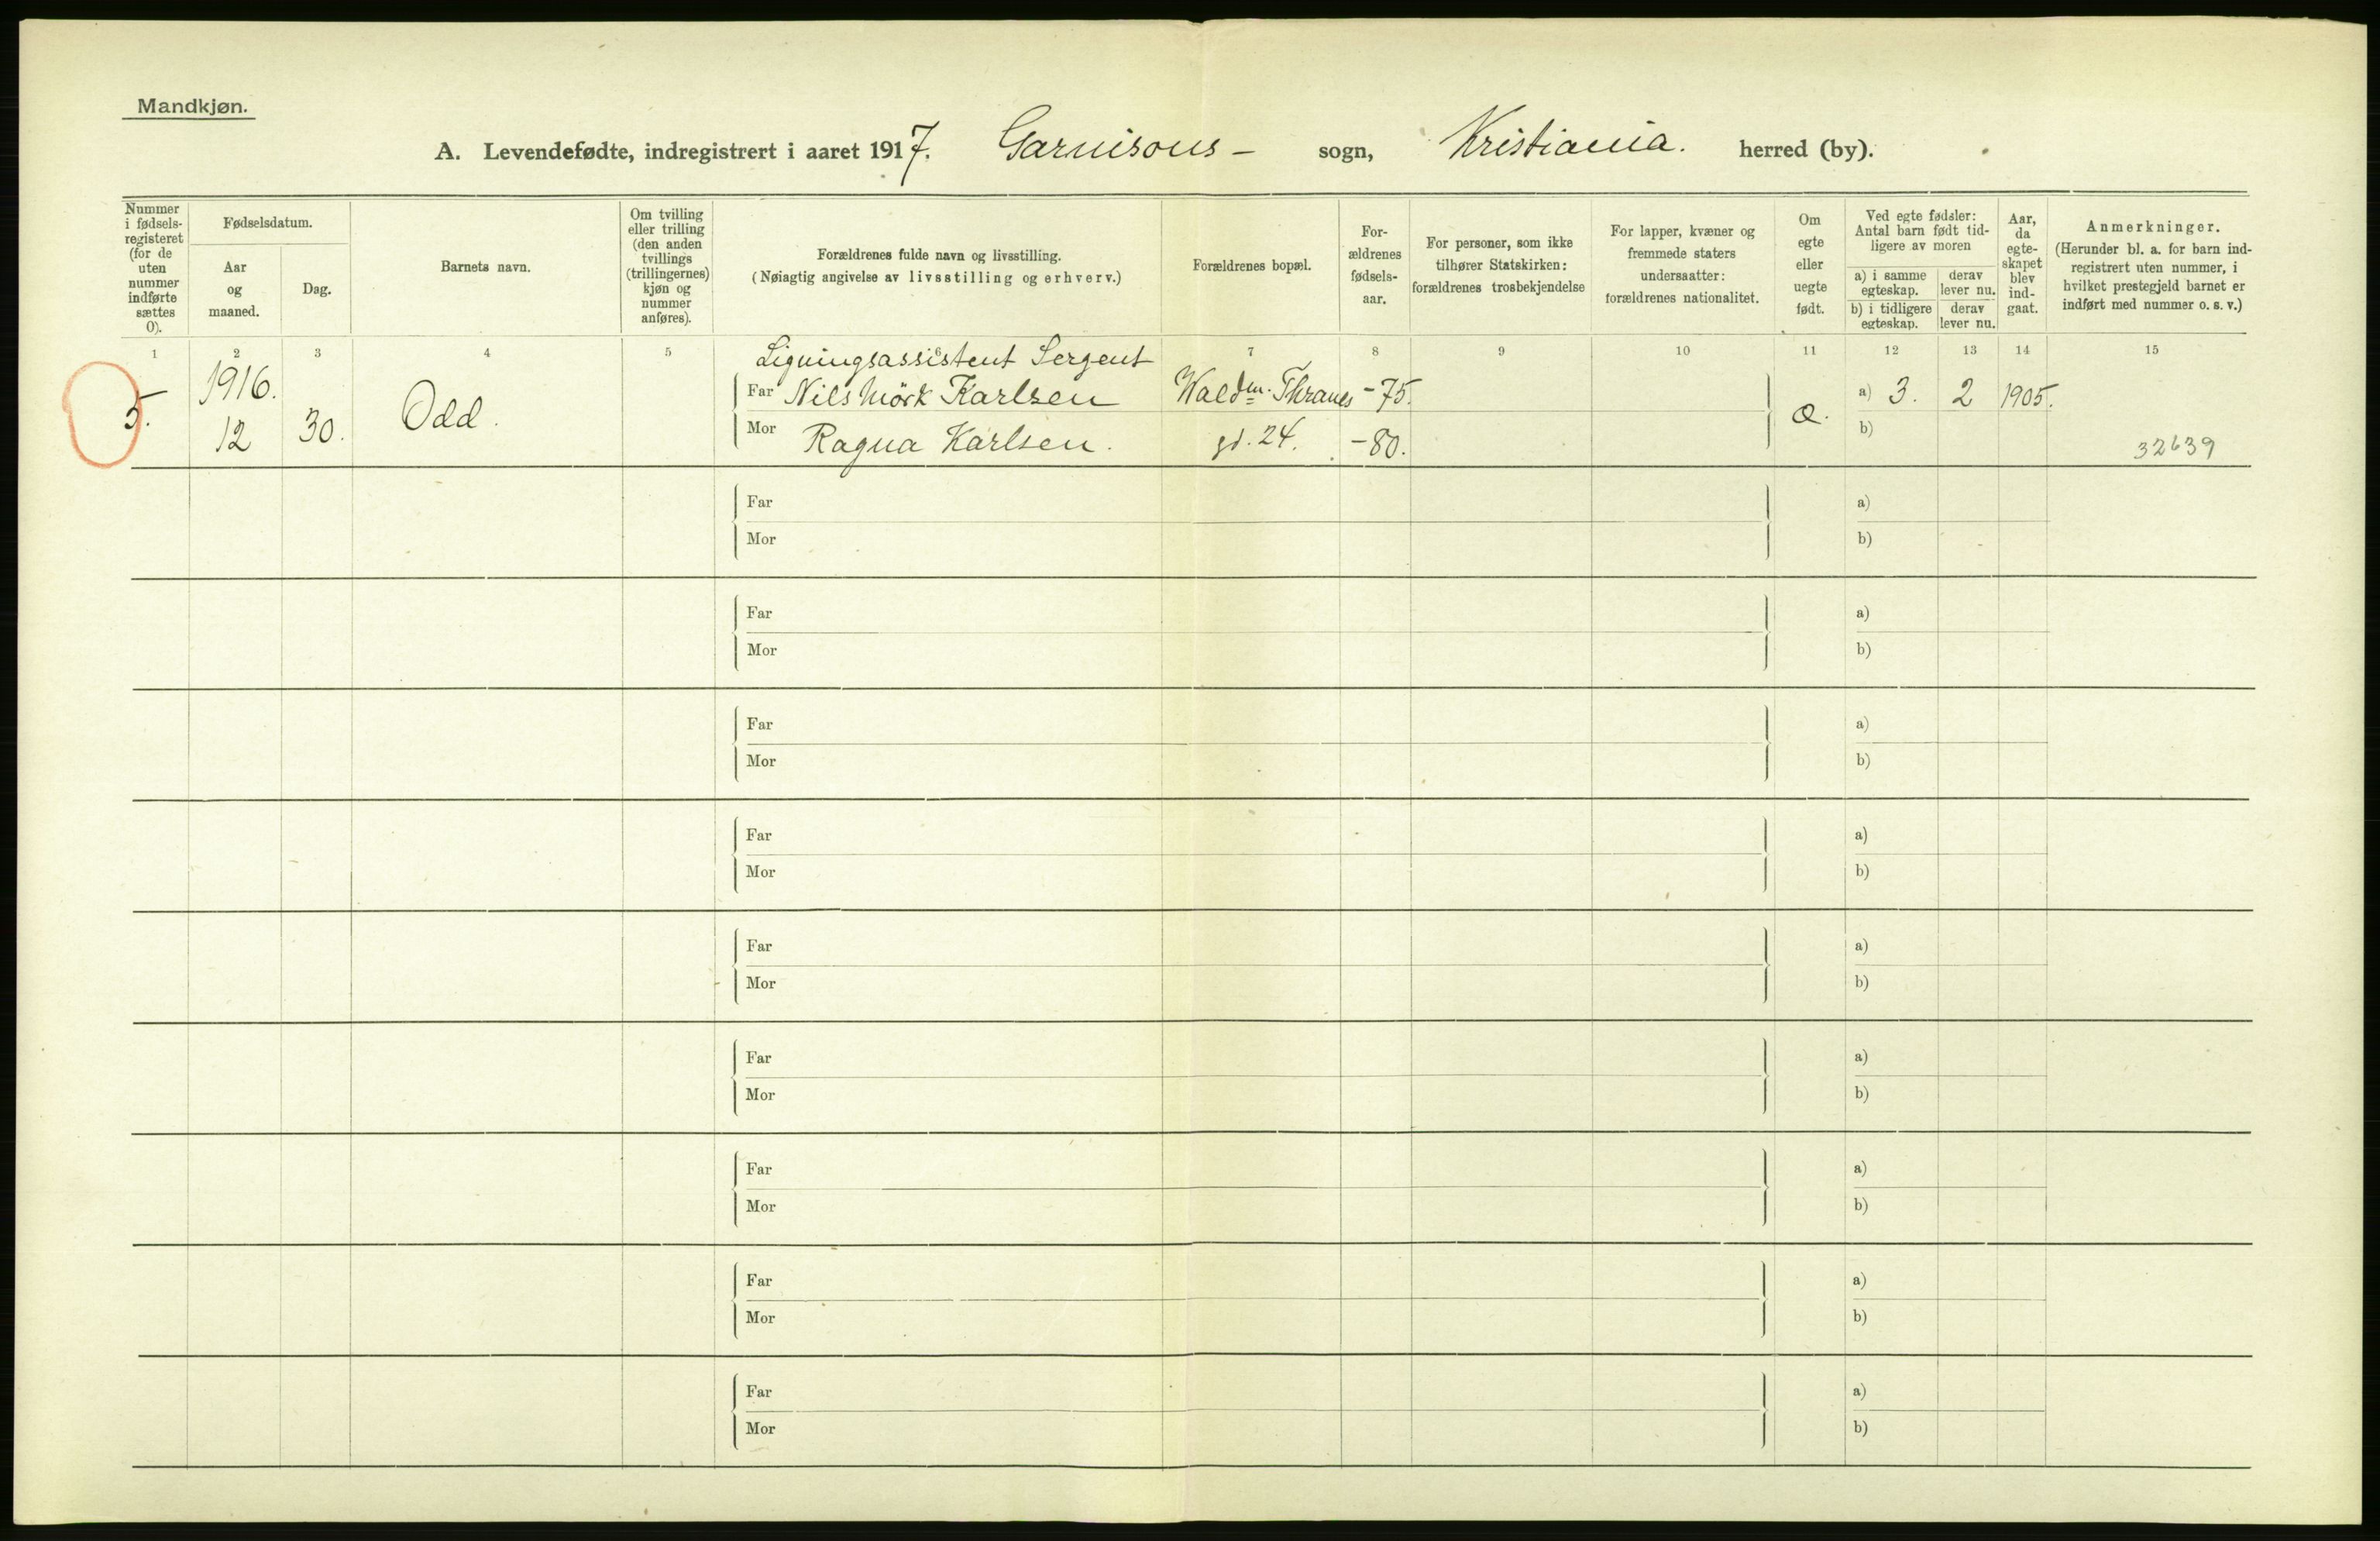 Mandkjøn.
A. Levendefødte, indregistrert i aaret 1917. Garnisons- sogn, Kristiania. herred (by).
Nummer i fødsels-registeret (for de uten nummer indførte sættes 0).
Fødselsdatum.
Aar og maaned.
Dag.
Barnets navn.
Om tvilling eller trilling (den anden tvillings (trillingernes) kjøn og nummer anføres).
Forældrenes fulde navn og livsstilling.
(Nøiagtig angivelse av livsstilling og erhverv.)
Forældrenes bopæl.
For-ældrenes fødsels-aar.
For personer, som ikke tilhører Statskirken: forældrenes trosbekjendelse
For lapper, kvæner og fremmede staters undersaatter: forældrenes nationalitet.
Om egte eller uegte født.
Ved egte fødsler: Antal barn født tid-ligere av moren
a) i samme egteskap.
derav lever nu.
b) i tidligere egteskap.
derav lever nu.
Aar, da egte-skapet blev ind-gaat.
Anmerkninger.
(Herunder bl. a. for barn ind-registrert uten nummer, i hvilket prestegjeld barnet er indført med nummer o. s. v.)
1 2 3 4 5 6 7 8 9 10 11 12 13 14 15
Ligningsassistent Sergent
5. 1916. Far Nils Mörk Karlsen Waldm. Thranes -75. a) 3. 2 1905.
12 30. Odd. Mor Ragna Karlsen. gd. 24. -80. b)
32639
Far a)
Mor b)
Far a)
Mor b)
Far a)
Mor b)
Far a)
Mor b)
Far a)
Mor b)
Far a)
Mor b)
Far a)
Mor b)
Far a)
Mor b)
Far a)
Mor b)